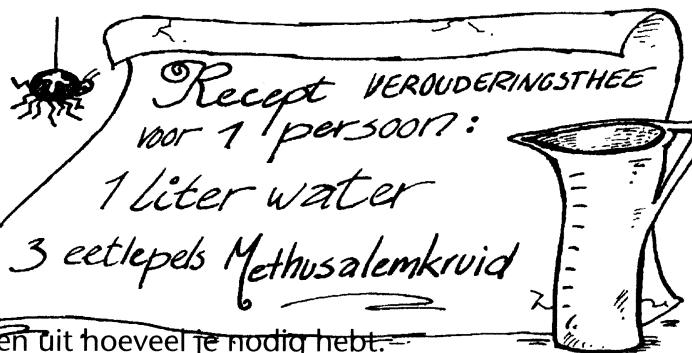 Recept VEROUDERINGSTHEE
voor 1 persoon:
1 liter water
3 eetlepels Methusalemkruid
en uit hoeveel je nodig hebt.